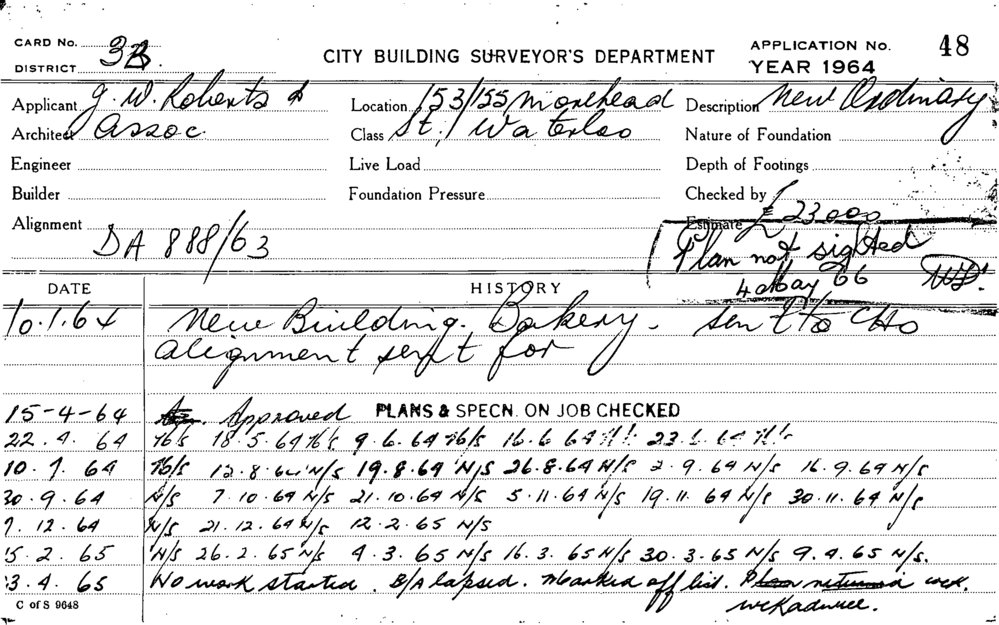 CARD No. 3B. CITY BUILDING SURVEYOR'S DEPARTMENT APPLICATION No. 48
DISTRICT YEAR 1964
Applicant J. W. Roberts & Location 153/155 Morehead Description New Ordinary
Architect Assoc. Class St., Waterloo Nature of Foundation
Engineer Live Load Depth of Footings
Builder Foundation Pressure Checked by
Alignment DA 888/63 Estimate £23000
Plan not sighted
4 May '66
DATE HISTORY
10.1.64 New Building. Bakery. Sent to CHO
alignment sent for
15-4-64 Approved PLANS & SPECN. ON JOB CHECKED
22.4.64 N/S 18.5.64 N/S 9.6.64 N/S 16.6.64 N/S 23.6.64 N/S
10.7.64 N/S 12.8.64 N/S 19.8.64 N/S 26.8.64 N/S 2.9.64 N/S 16.9.64 N/S
30.9.64 N/S 7.10.64 N/S 21.10.64 N/S 5.11.64 N/S 19.11.64 N/S 30.11.64 N/S
7.12.64 N/S 21.12.64 N/S 12.2.65 N/S
15.2.65 N/S 26.2.65 N/S 9.3.65 N/S 16.3.65 N/S 30.3.65 N/S 9.4.65 N/S.
3.4.65 No work started. B/A lapsed. Marked off list. Plan returned
C of S 9648